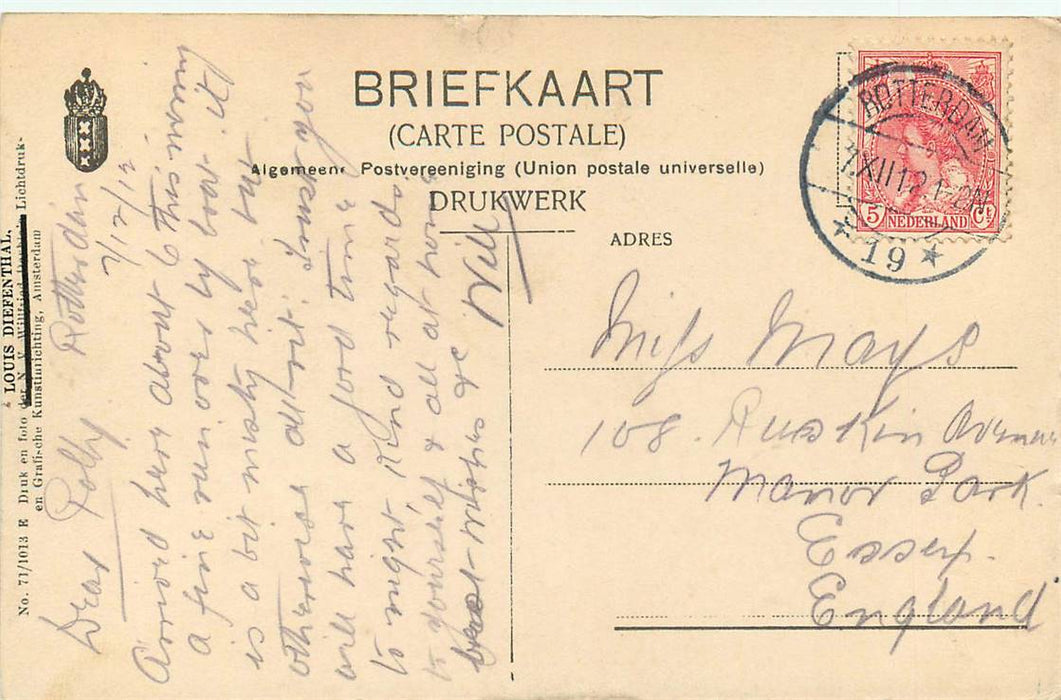 BRIEFKAART
(CARTE POSTALE)
Algemeene Postvereeniging (Union postale universelle)
DRUKWERK
ADRES
ROTTERDAM
7.XII12.1-2N
19
5 NEDERLAND Ct
LOUIS DIEFENTHAL,
No. 71/1013 E Druk en foto der N. V. Lichtdruk-
en Grafische Kunstinrichting, Amsterdam
Rotterdam
7/12/12
Dear Polly
Arrived here about 6 this morng
a fine run over by boat. It
is a bit misty here but
otherwise allright. Trust you
will have a good time
to night, Kind regards
to yourself & all at home
best wishes &c
Will
Miss Mays
108. Ruskin Avenue
Manor Park.
Essex.
England